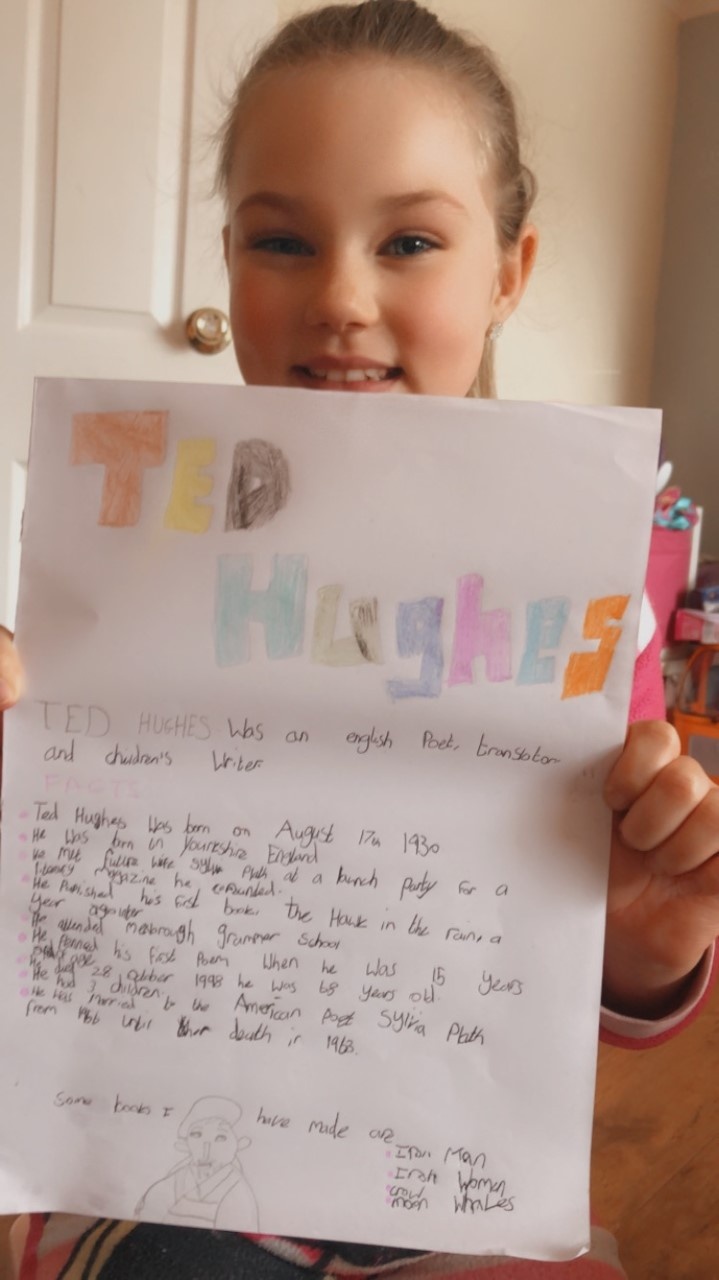 TED
Hughes
TED HUGHES Was an english Poet, translator
and chuldren's Writer
FACTS
Ted Hughes Was born on August 17th 1930
He Was born in Yourkshire England
He met future wife Sylvia Plath at a launch party for a
literary magazine he cofounded.
He Published his first book, the Hawk in the rain, a
year
He attended grammer school
He Penned his First Poem When he Was 15 years
He died 28 October 1998 he was 68 years old.
He had 3 children.
He Was married to the American Poet Sylvia Plath
from until death in 1963.
Some books I have made are
Iron Man
Iron Women
Crow
moon Whales